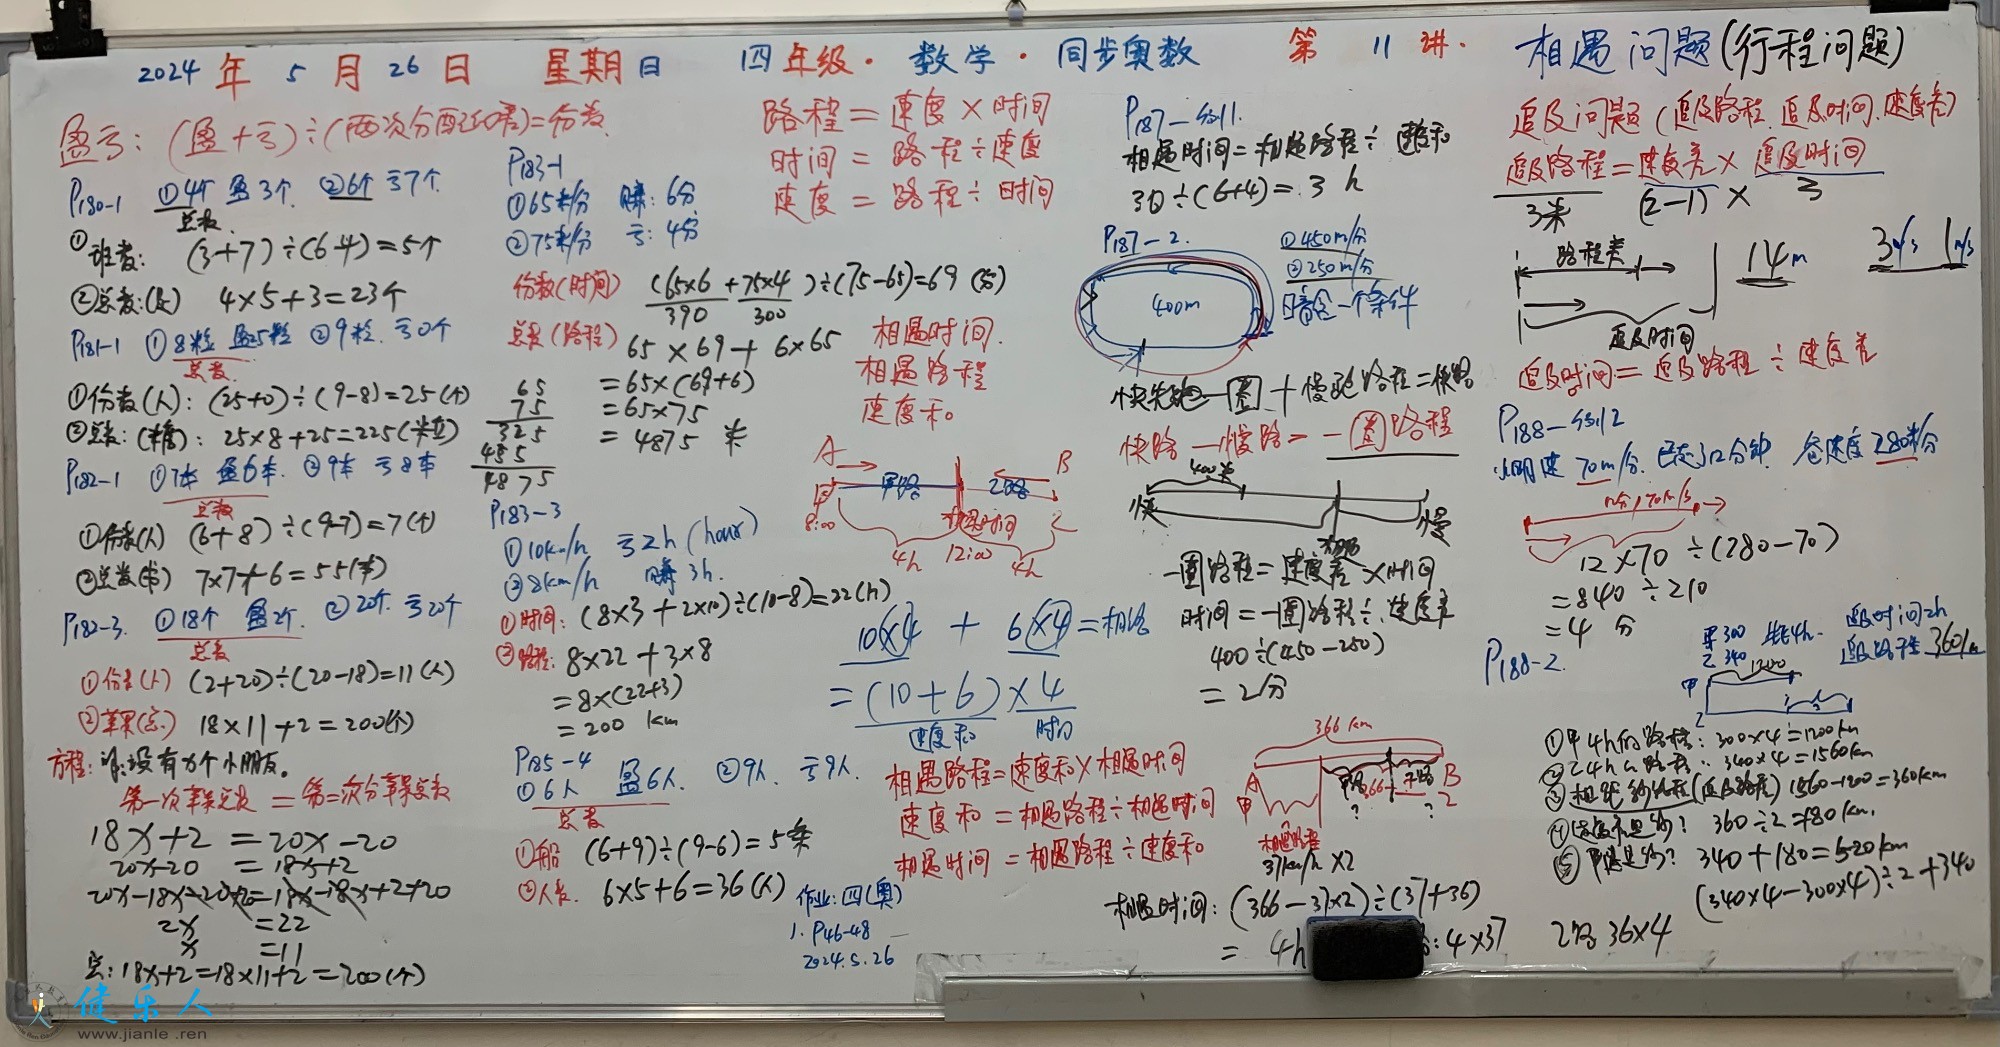 2024年5月26日 星期日 四年级·数学·同步奥数 第11讲· 相遇问题(行程问题)
盈亏:(盈+亏)÷(两次分配的差)=份数
P180-1 ①4个 盈3个 ②6个 亏7个
总数
①班数: (3+7)÷(6-4)=5个
②总数: 4×5+3=23个
P181-1 ①8粒 盈25粒 ②9粒 亏0个
总数
①份数(人): (25+0)÷(9-8)=25(个)
②总数:(糖): 25×8+25=225(粒)
P182-1 ①7本 盈6本 ②9本 亏8本
总数
①份数(人) (6+8)÷(9-7)=7(个)
②总数(书) 7×7+6=55(本)
P182-3. ①18个 盈2个 ②20个 亏20个
总数
①份数(人) (2+20)÷(20-18)=11(人)
②苹果(总) 18×11+2=200(个)
方程: 设没有x个小朋友。
第一次苹果总数=第二次分苹果总数
18x+2 = 20x-20
20x-20 = 18x+2
20x-18x-20+20=18x-18x+2+20
2x =22
x =11
总:18x+2=18×11+2=200(个)
P183-1
①65米/分 赚:6分
②75米/分 亏:4分
份数(时间) (65×6+75×4)÷(75-65)=69(分)
390 300
总数(路程) 65×69+6×65
=65×(69+6)
=65×75
=4875 米
65
75
325
455
4875
P183-3
①10km/h 亏2h(hour)
②8km/h 赚3h.
①时间: (8×3+2×10)÷(10-8)=22(h)
②路程: 8×22+3×8
=8×(22+3)
=200 km
P185-4
①6人 盈6人 ②9人 亏9人
总数
①船 (6+9)÷(9-6)=5条
②人数 6×5+6=36(人)
作业:四(奥)
1. P46-48
2024.5.26
路程=速度×时间
时间=路程÷速度
速度=路程÷时间
相遇时间
相遇路程
速度和
A B
甲路 乙路
8:00 相遇时间
4h 12:00 4h
10×4 + 6×4=相路
=(10+6)×4
速度和 时间
相遇路程=速度和×相遇时间
速度和=相遇路程÷相遇时间
相遇时间=相遇路程÷速度和
P187-例11.
相遇时间=相遇路程÷速度和
30÷(6+4)=3 h
P187-2.
①450m/分
②250m/分
400m
暗含一个条件
快先跑一圈+慢跑路程=快路
快路-慢路=一圈路程
400米
快 慢
一圈路程=速度差×时间
时间=一圈路程÷速度差
400÷(450-250)
=2分
366km
A B
甲 乙
? ?
相遇路程
37km/h ×2
相遇时间: (366-37×2)÷(37+36)
= 4h
:4×37 乙路 36×4
追及问题(追及路程.追及时间.速度差)
追及路程=速度差×追及时间
3米 (2-1)× 3
路程差
14m 3m/s 1m/s
追及时间
追及时间=追及路程÷速度差
P188-例12
小明速70m/分. 已走了12分钟 爸速度280米/分
12×70÷(280-70)
=840÷210
=4 分
P188-2.
甲300 4h.
乙340
追及时间2h
追及路程360km
1200
甲
乙
①甲4h的路程: 300×4=1200km
②乙4h的路程: 340×4=1560km
③相距的路程(追及路程) 1560-1200=360km
④速度差是多少? 360÷2=180km.
⑤甲速是多少? 340+180=520km
(340×4-300×4)÷2+340
健乐人
www.jianle.ren